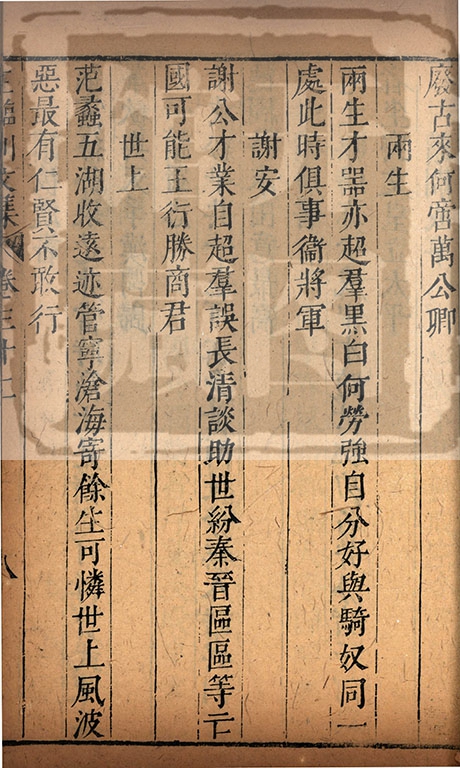 廢古來何啻萬公卿
兩生
兩生才器亦超羣黑白何勞強自分好與騎奴同一
處此時俱事衞將軍
謝安
謝公才業自超羣誤長清談助世紛秦晉區區等亡
國可能王衍勝商君
世上
范蠡五湖收遠迹管寧滄海寄餘生可憐世上風波
惡最有仁賢不敢行
王臨川文集 卷三十二 八